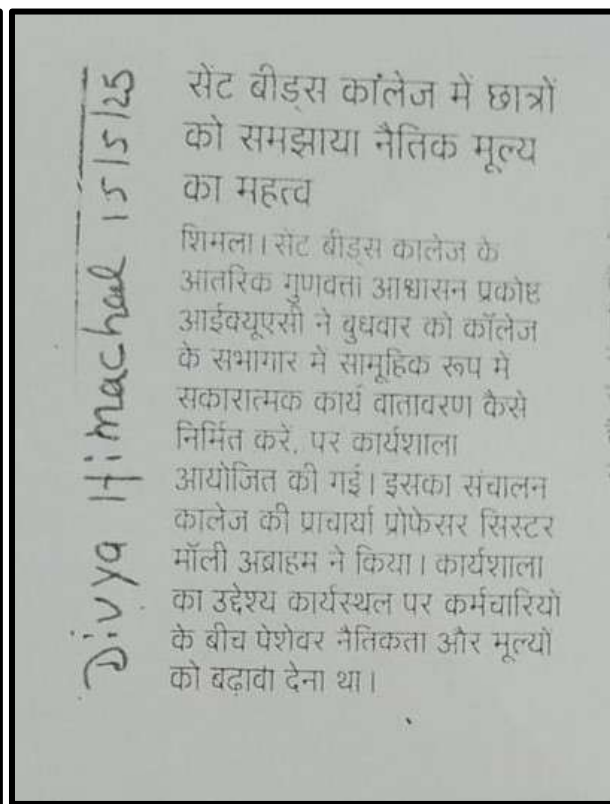 Divya Himachal 15/5/25
सेंट बीड्स कॉलेज में छात्रों
को समझाया नैतिक मूल्य
का महत्व
शिमला। सेंट बीड्स कालेज के
आतरिक गुणवत्ता आश्वासन प्रकोष्ठ
आईक्यूएसी ने बुधवार को कॉलेज
के सभागार में सामूहिक रूप में
सकारात्मक कार्य वातावरण कैसे
निर्मित करें, पर कार्यशाला
आयोजित की गई। इसका संचालन
कालेज की प्राचार्या प्रोफेसर सिस्टर
मॉली अब्राहम ने किया। कार्यशाला
का उद्देश्य कार्यस्थल पर कर्मचारियों
के बीच पेशेवर नैतिकता और मूल्यों
को बढ़ावा देना था।